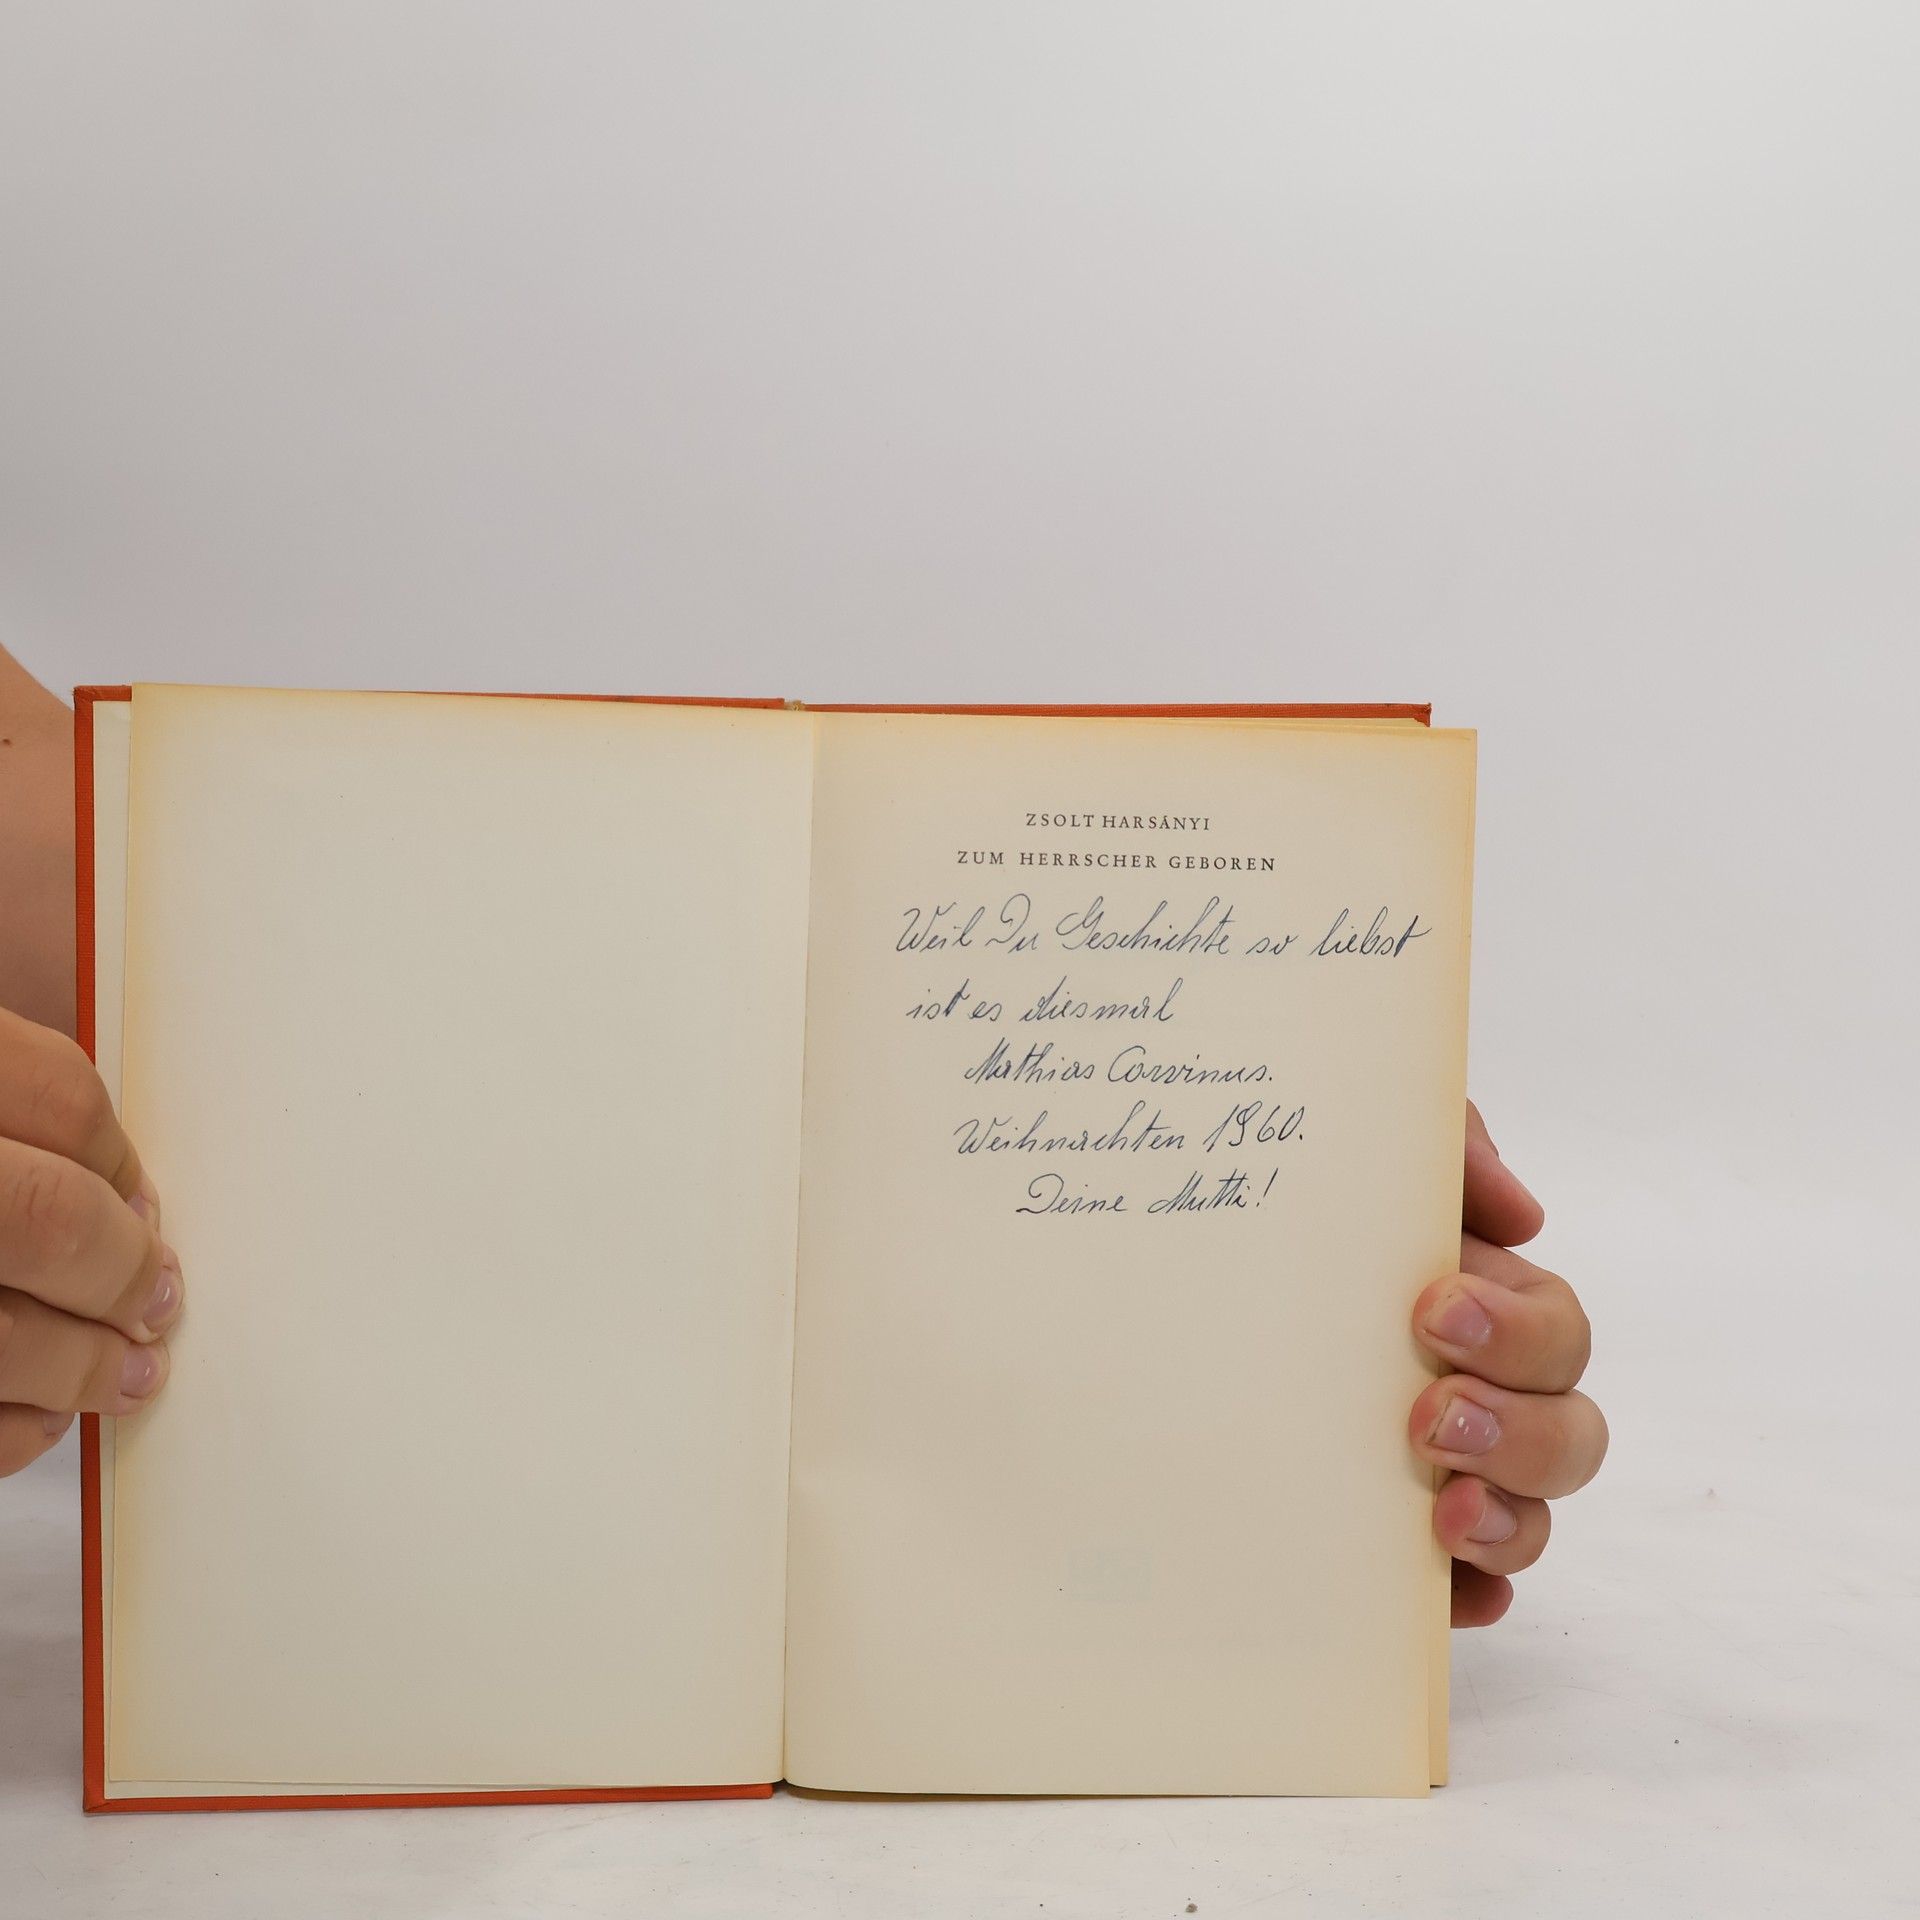 ZSOLT HARSÁNYI
ZUM HERRSCHER GEBOREN
Weil Du Geschichte so liebst
ist es diesmal
Mathias Corvinus.
Weihnachten 1960.
Deine Mutti!